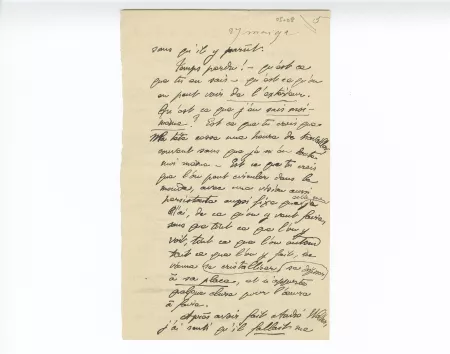 15
27 mai 92
sans qu'il y parût.
Temps perdu! - qu'est ce
que tu en sais - qu'est ce qu'on
en peut voir de l'extérieur.
Qu'est ce que j'en sais moi-
même? Est ce que tu crois que
ma tête cesse une heure de travailler
souvent sans que je m'en doute
moi même - Est ce que tu crois
que l'on peut circuler dans le
monde, avec une vision aussi
persistante aussi fixe que je
l'ai, de ce qu'on y veut faire,
sans que tout ce que l'on y
voit, tout ce que l'on entend
tout ce que l'on y fait, ne
vienne se cristalliser
à sa place, et n'apporte
quelque chose pour l'œuvre
à faire.
Après avoir fait André Walter,
j'ai senti qu'il fallait me